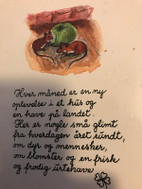 Hver måned er en ny
oplevelse i et hus og
en have på landet.
Her er nogle små glimt
fra hverdagen året rundt,
om dyr og mennesker,
om blomster og en frisk
og frodig urtehave